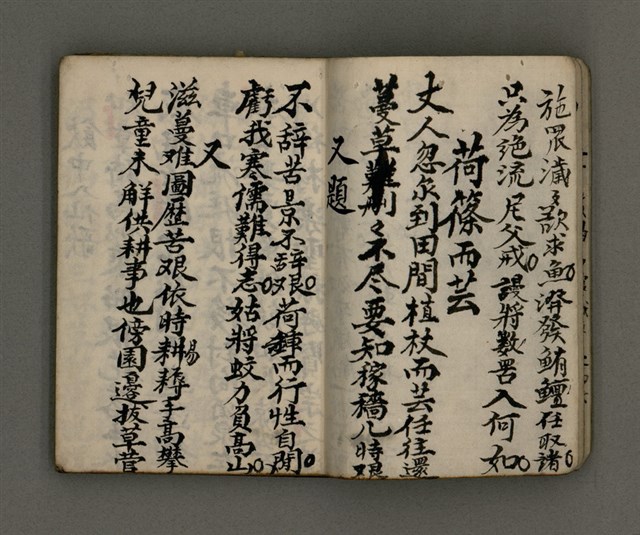 施罛濊濊欲求魚濟發鮪鱣任取諸
只為絕流尼父戒謾將數罟入何如
荷篠而芸
丈人忽爾到田間植杖而芸任往還
蔓草難刪刪不尽要知稼穡几時艰
又題
不辞苦景不辞艰荷鍾而行性自閒
虧我寒儒難得老姑將蚊力負高山
又
滋蔓难圖歷苦艰依時耕耨手高攀
兒童未解供耕事也傍園邊拔草菅